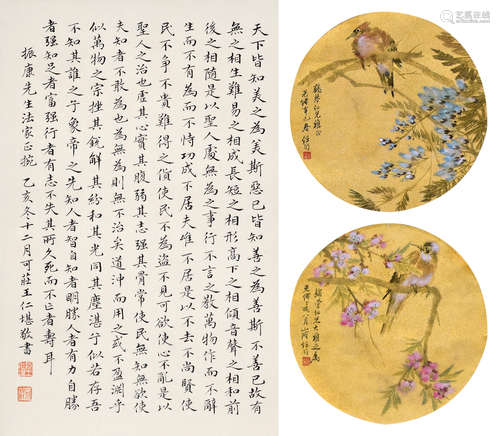 天下皆知美之為美斯惡已皆知善之為善斯不善已故有
無之相生難易之相成長短之相形高下之相傾音聲之相和前
後之相隨是以聖人處無為之事行不言之教萬物作而不辭
生而不有為而不恃功成不居夫唯不居是以不去不尚賢使
民不爭不貴難得之貨使民不為盜不見可欲使心不亂是以
聖人之治也虛其心實其腹弱其志強其骨常使民無知無欲使
夫知者不敢為也為無為則無不治矣道沖而用之或不盈淵乎
似萬物之宗挫其銳解其紛和其光同其塵湛乎似若存吾
不知其誰之子象帝之先知人者智自知者明勝人者有力自勝
者強知足者富強行者有志不失其所久死而不亡者壽耳
振康先生法家正捥 乙亥冬十二月可莊王仁堪敬書
光緒
任
光緒
八月
任